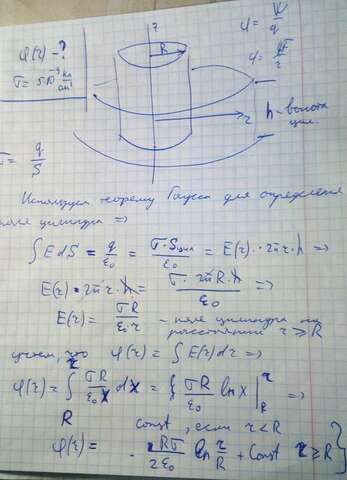 φ(r) - ?
σ = 5·10⁻⁹ Кл/см²
R
r
φ = W/q
h - высота цил.
= q/S
Используя теорему Гаусса для определения
поля цилиндра =>
∫EdS = q/ε₀ = σ·Sцил/ε₀ = E(r)·2πr·h =>
E(r)·2πr·h = σ·2πR·h/ε₀ =>
E(r) = σR/ε₀·r - поле цилиндра на
расстоянии r ≥ R
что φ(r) = ∫E(r)dr =>
φ(r) = ∫ σR/ε₀x dx = σR/ε₀ ln x |ᵣ =>
R
const, если r < R
φ(r) = - Rσ/2ε₀ ln r/R + Const r ≥ R